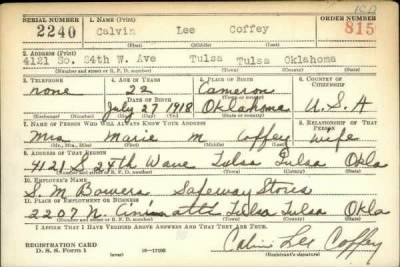 SERIAL NUMBER 1. NAME (Print) ORDER NUMBER
2240 Calvin Lee Coffey 815
(First) (Middle) (Last)
2. ADDRESS (Print)
4121 So. 24th W. Ave Tulsa Tulsa Oklahoma
(Number and street or R. F. D. number) (Town) (County) (State)
3. TELEPHONE 4. AGE IN YEARS 5. PLACE OF BIRTH 6. COUNTRY OF CITIZENSHIP
none 22 Cameron
DATE OF BIRTH (Town or county)
July 27 1918 Oklahoma U.S.A
(Mo.) (Day) (Yr.) (State or country)
7. NAME OF PERSON WHO WILL ALWAYS KNOW YOUR ADDRESS 8. RELATIONSHIP OF THAT PERSON
Mrs Marie M Coffey wife
(Mr., Mrs., Miss) (First) (Middle) (Last)
9. ADDRESS OF THAT PERSON
4121 S 24th W ave Tulsa Tulsa Okla
(Number and street or R. F. D. number) (Town) (County) (State)
10. EMPLOYER'S NAME
S. M. Bowers Safeway Stores
11. PLACE OF EMPLOYMENT OR BUSINESS
2207 N. Tulsa Tulsa Okla
(Number and street or R. F. D. number) (Town) (County) (State)
I AFFIRM THAT I HAVE VERIFIED ABOVE ANSWERS AND THAT THEY ARE TRUE.
REGISTRATION CARD Calvin Lee Coffey
D. S. S. Form 1 (over) (Registrant's signature)